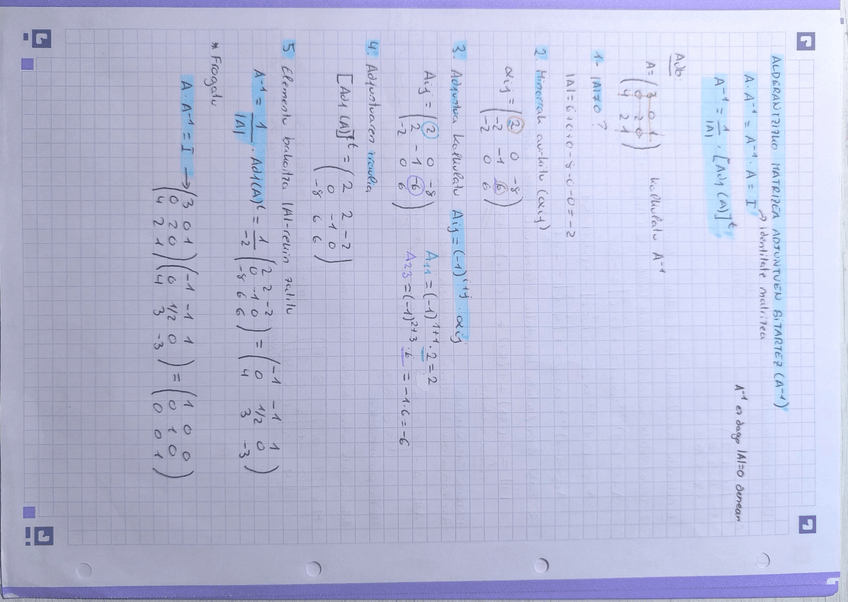 ALDERANTZIZKO MATRIZEA ADJUNTUEN BITARTEZ (A⁻¹)
A · A⁻¹ = A⁻¹ · A = I → identitate matrizea
A⁻¹ = 1/|A| · [Adj (A)]ᵗ
A⁻¹ ez dago |A|=0 denean
Adb:
A = (3 0 1
0 2 0
4 2 1) kalkulatu A⁻¹
1- |A|≠0 ?
|A| = 6+0+0-8-0-0 = -2
2. Minoreak aurkitu (αij)
αij = (2 0 -8
-2 -1 6
-2 0 6)
3. Adjuntua kalkulatu Aij = (-1)ⁱ⁺ʲ · αij
Aij = (2 0 -8
2 -1 -6
-2 0 6)
A11 = (-1)¹⁺¹ · 2 = 2
A23 = (-1)²⁺³ · 6 = -1·6 = -6
4. Adjuntuaren iraulia
[Adj (A)]ᵗ = (2 2 -2
0 -1 0
-8 6 6)
5. Elementu bakoitza |A|-rekin zatitu
A⁻¹ = 1/|A| · Adj(A)ᵗ = 1/-2 (2 2 -2
0 -1 0
-8 6 6) = (-1 -1 1
0 1/2 0
4 3 -3)
* Frogatu
A · A⁻¹ = I → (3 0 1
0 2 0
4 2 1) (-1 -1 1
0 1/2 0
4 3 -3) = (1 0 0
0 1 0
0 0 1)